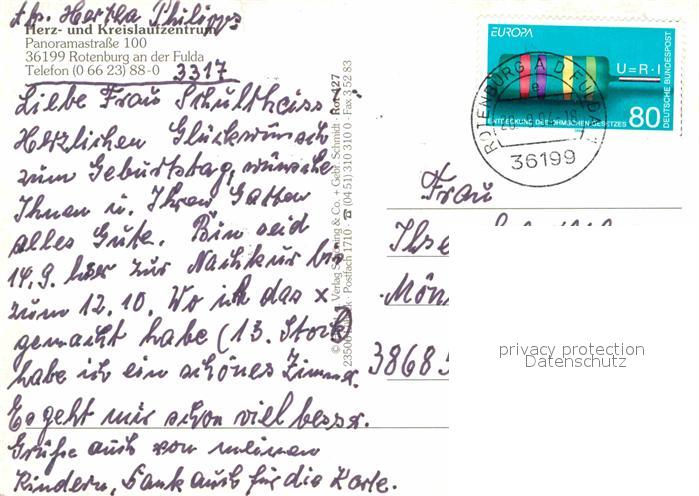 z.Zt. Hertha Philipps
Herz- und Kreislaufzentrum
Panoramastraße 100
36199 Rotenburg an der Fulda
Telefon (0 66 23) 88-0 3317
Liebe Frau Schultheiss
Herzlichen Glückwunsch
zum Geburtstag, wünsche
Ihnen u. Ihren Gatten
alles Gute. Bin seid
14.9. hier zur Nachkur bis
zum 12.10. Wo ich das x
gemacht habe (13. Stock)
habe ich ein schönes Zimmer.
Es geht mir schon viel besser.
Grüße auch von meinen
Kindern, Dank auch für die Karte.
Verlag Schöning & Co. + Gebr. Schmidt · Rot 427
Postfach 1710 · ☎ (04 51) 310 310 0 · Fax 3 52 83
EUROPA
U=R·I
ENTDECKUNG DES OHMSCHEN GESETZES 80
DEUTSCHE BUNDESPOST
ROTENBURG A D FULDA
36199
Frau
Ilse
Mön
38685
privacy protection
Datenschutz